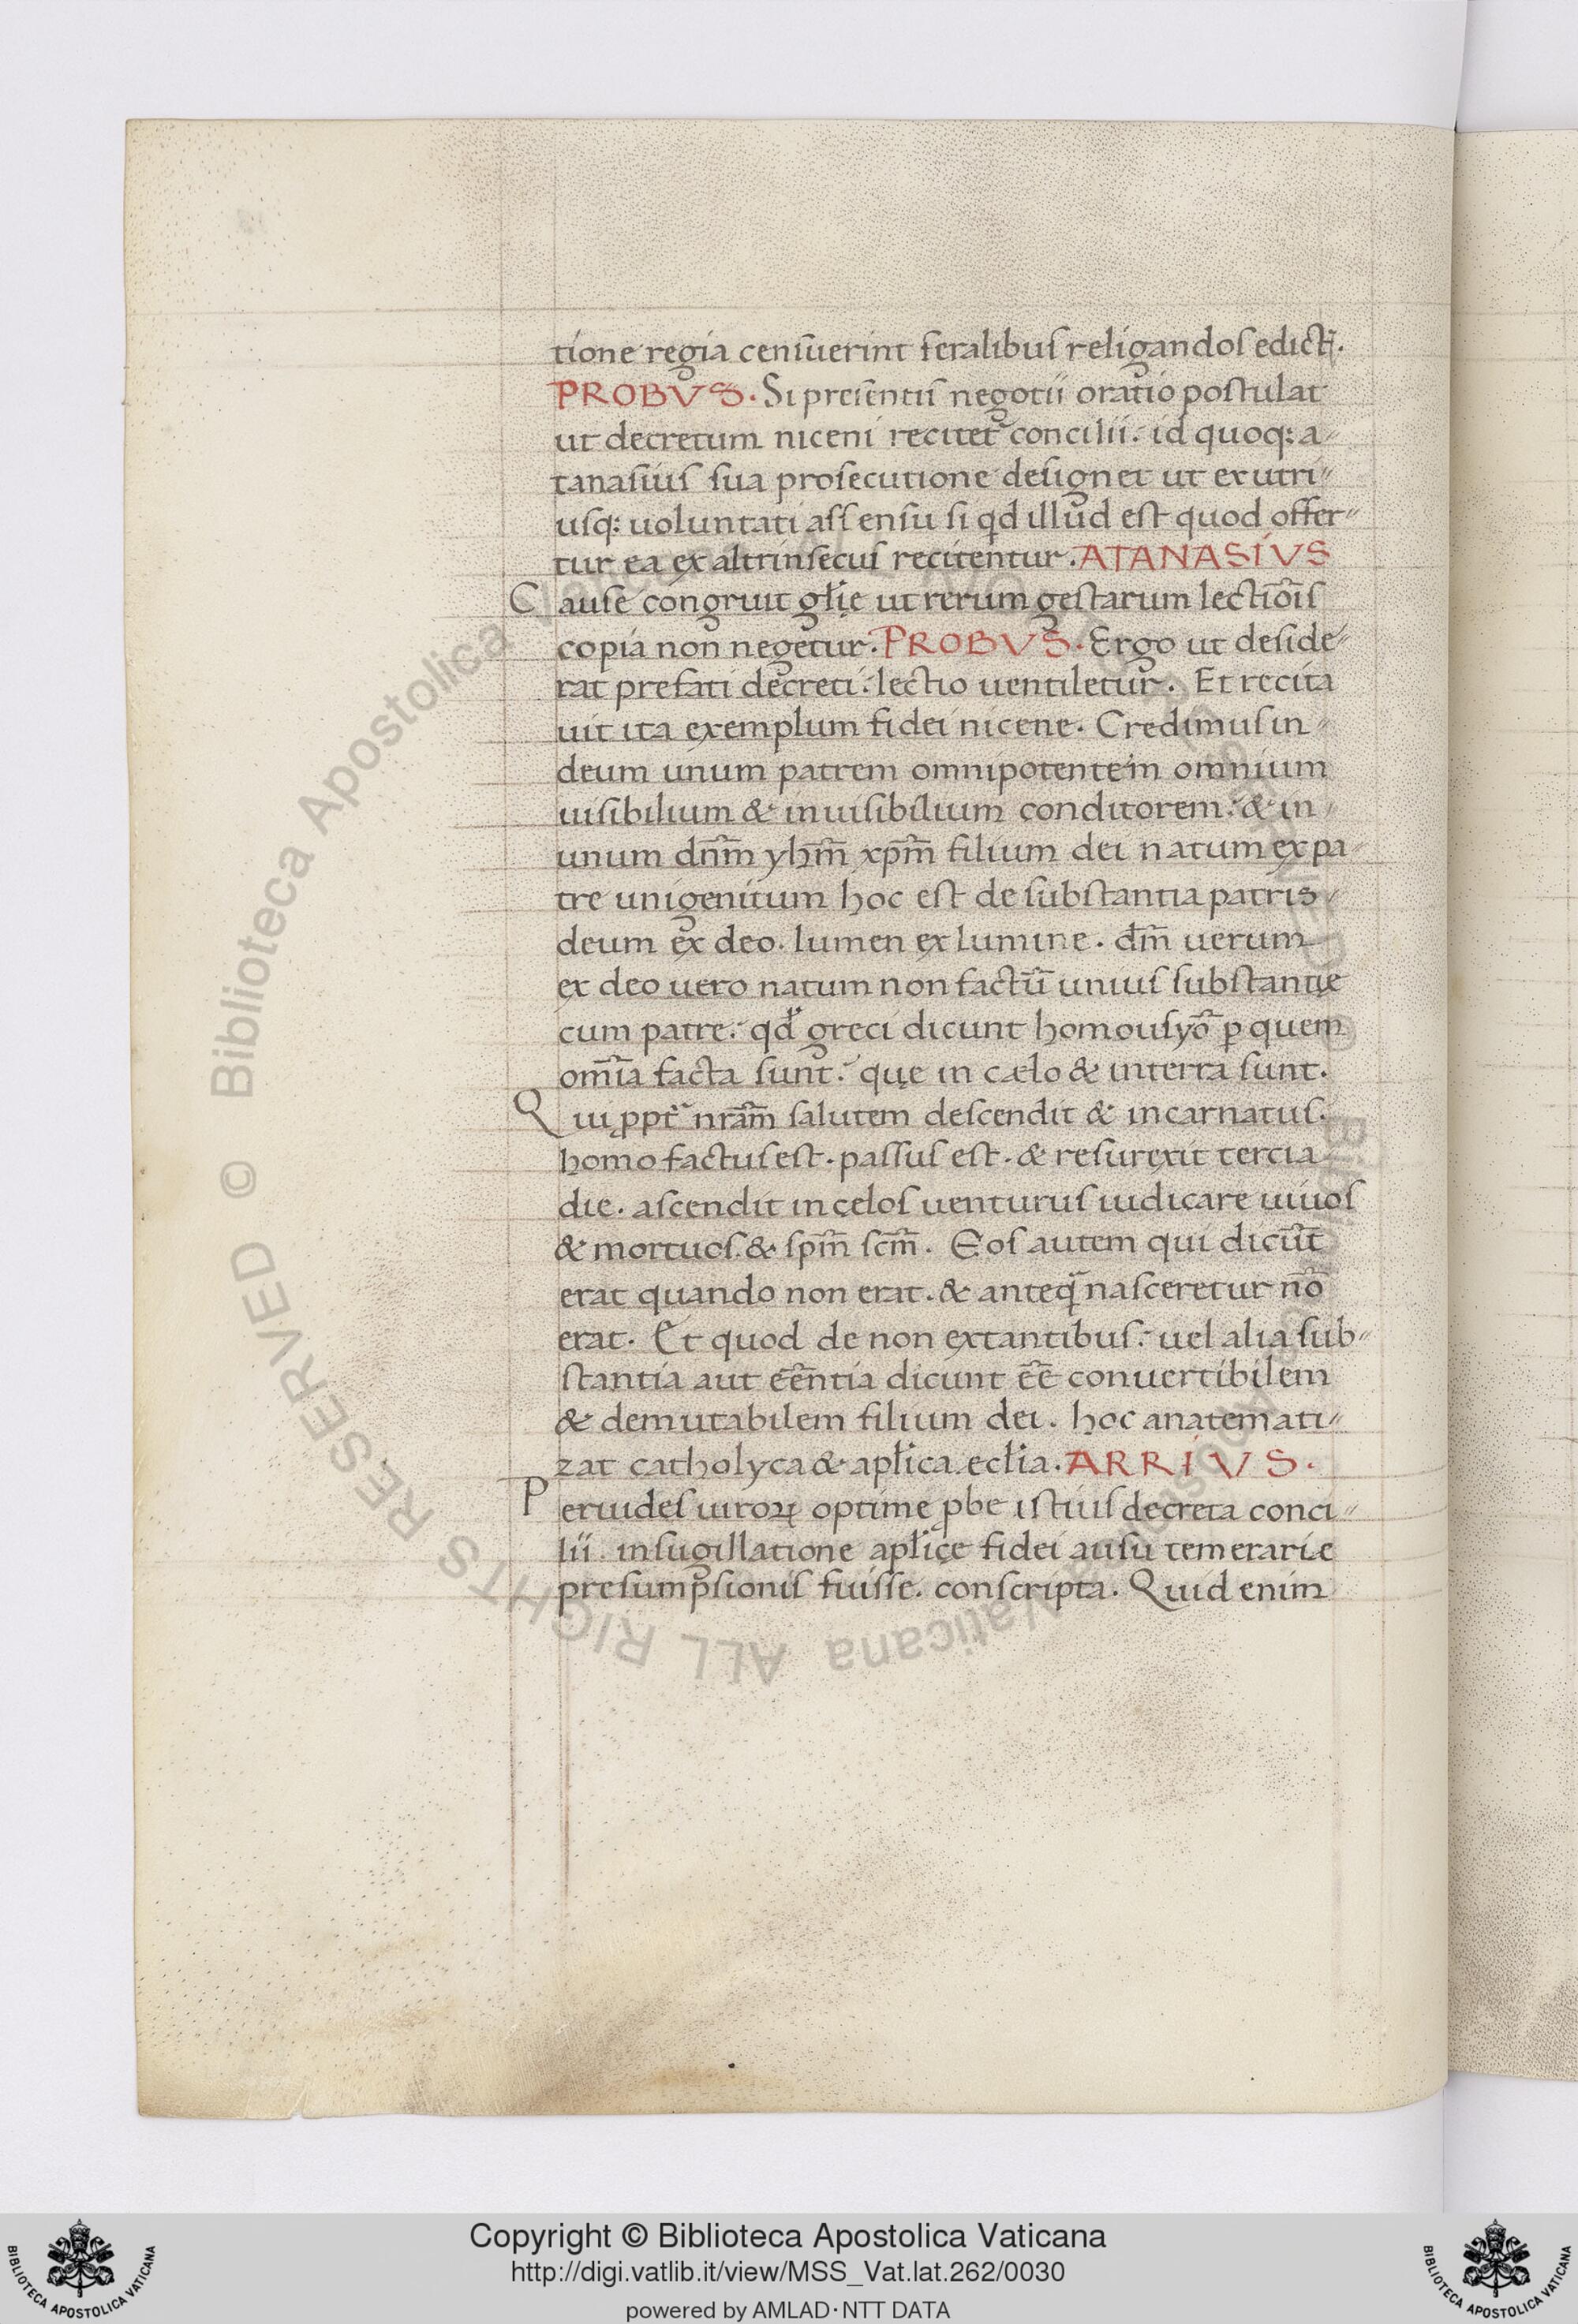 tione regia censuerint feralibus religandos edictꝭ.
PROBVS. Si presentis negotii oratio postulat
ut decretum niceni recitet᷑ concilii. id quoq; a-
tanasius sua prosecutione designet ut ex utri-
usq; uoluntati assensu si qd illud est quod offer-
tur ea ex altrinsecus recitentur. ATANASIVS
Cause congruit gl̃ię ut rerum gestarum lectiõis
copia non negetur. PROBVS. Ergo ut deside-
rat prefati decreti: lectio uentiletur. Et recita
uit ita exemplum fidei nicene. Credimus in
deum unum patrem omnipotentem omnium
uisibilium & inuisibilium conditorem: & in
unum dñm yhm̃ xpm̃ filium dei natum ex pa-
tre unigenitum hoc est de substantia patris
deum ex deo. lumen ex lumine. dm̃ uerum
ex deo uero natum non factũ unius substantię
cum patre: qđ greci dicunt homousyõ ꝑ quem
om̃ia facta sunt: quę in cælo & in terra sunt.
Qui ꝓpt᷑ nrãm salutem descendit & incarnatus.
homo factus est. passus est. & resurexit tercia
die. ascendit in celos uenturus iudicare uiuos
& mortuos. & spm̃ scm̃. Eos autem qui dicũt
erat quando non erat. & anteq̃ nasceretur nõ
erat. Et quod de non extantibus: uel alia sub-
stantia aut eẽntia dicunt eẽ conuertibilem
& demutabilem filium dei. hoc anatemati-
zat catholyca & apl̃ica ecl̃ia. ARRIVS.
Peruides uiroꝝ optime ꝓbe istius decreta conci-
lii. in sugillatione apl̃icę fidei ausu temerarie
presumpsionis fuisse. conscripta. Quid enim
© Biblioteca Apostolica Vaticana ALL RIGHTS RESERVED
Copyright © Biblioteca Apostolica Vaticana
http://digi.vatlib.it/view/MSS_Vat.lat.262/0030
powered by AMLAD·NTT DATA
BIBLIOTECA APOSTOLICA VATICANA
BIBLIOTECA APOSTOLICA VATICANA